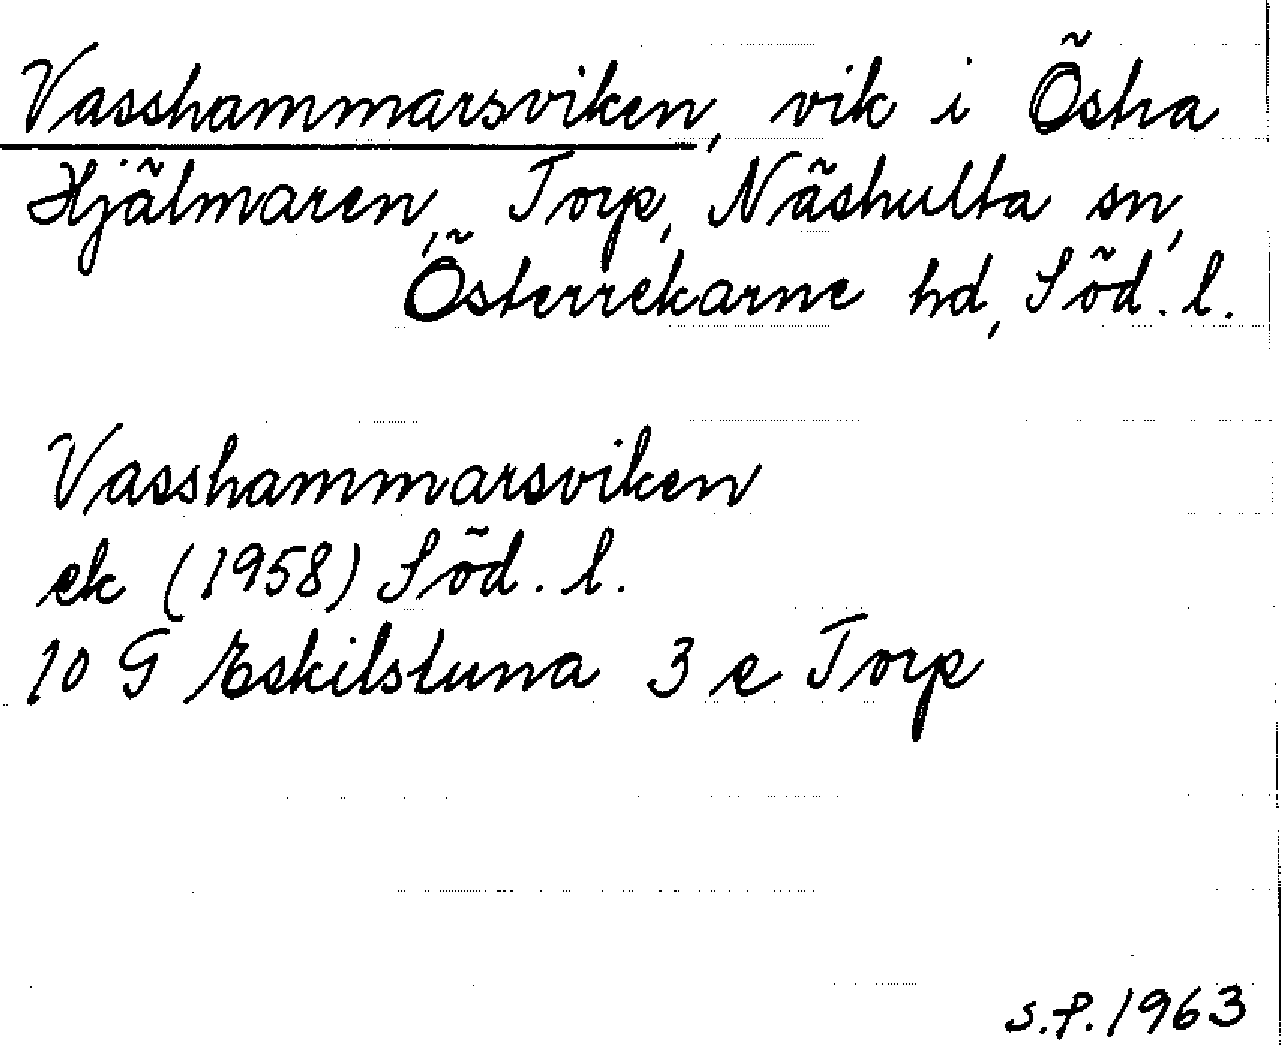 Vasshammarsviken, vik i Östra
Hjälmaren, Torp, Näshulta sn,
Österrekarne hd, Söd. l.
Vasshammarsviken
ek (1958) Söd. l.
10 G Eskilstuna 3 e Torp
s.f. 1963